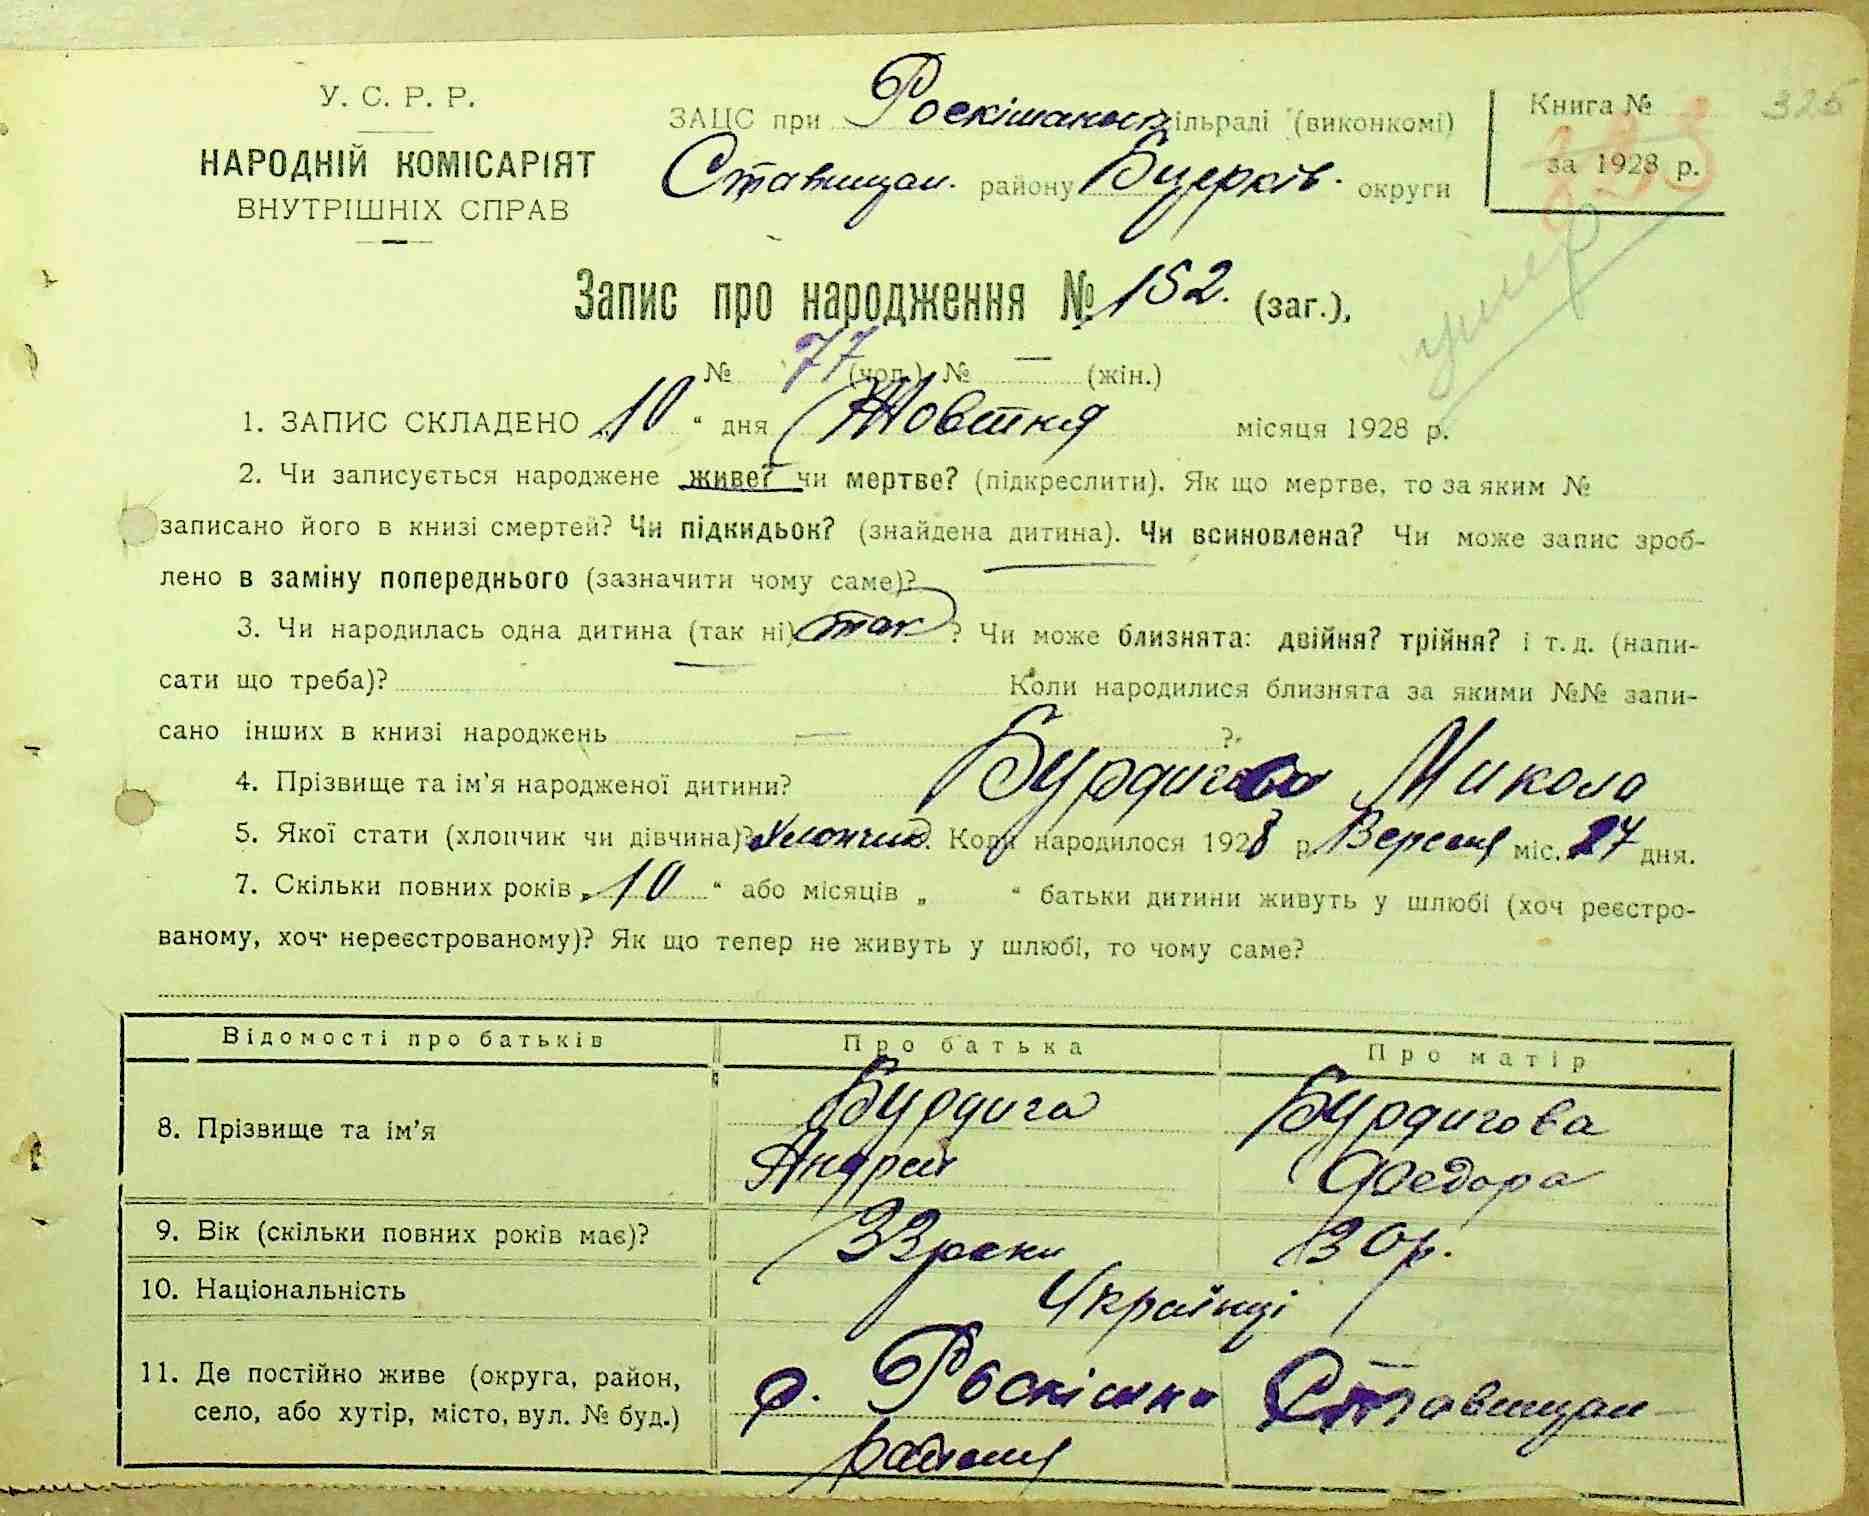 У. С. Р. Р.
НАРОДНІЙ КОМІСАРІЯТ
ВНУТРІШНІХ СПРАВ
325
Книга №
за 1928 р.
ЗАЦС при Роскішанськ ільраді (виконкомі)
Ставищан. району Бцерків. округи
умер
Запис про народження № 152. (заг.),
№ 77 (чол.) № — (жін.)
1. ЗАПИС СКЛАДЕНО „10“ дня Жовтня місяця 1928 р.
2. Чи записується народжене живе? чи мертве? (підкреслити). Як що мертве, то за яким №
записано його в книзі смертей? Чи підкидьок? (знайдена дитина). Чи всиновлена? Чи може запис зроб-
лено в заміну попереднього (зазначити чому саме)?
3. Чи народилась одна дитина (так ні) так? Чи може близнята: двійня? трійня? і т. д. (напи-
сати що треба)? Коли народилися близнята за якими №№ запи-
сано інших в книзі народжень — ?
4. Прізвище та ім'я народженої дитини? Микола
5. Якої стати (хлопчик чи дівчина)? Хлопчик. Коли народилося 1928 р. Вересня міс. 27 дня.
7. Скільки повних років „10“ або місяців „ “ батьки дитини живуть у шлюбі (хоч реєстро-
ваному, хоч нереєстрованому)? Як що тепер не живуть у шлюбі, то чому саме?
Відомості про батьків Про батька Про матір
8. Прізвище та ім'я Бурдига Бурдигова
Андрей Федора
9. Вік (скільки повних років має)? 33 роки 30 р.
10. Національність Українці
11. Де постійно живе (округа, район,
село, або хутір, місто, вул. № буд.) с. Роскішна Ставищан
району